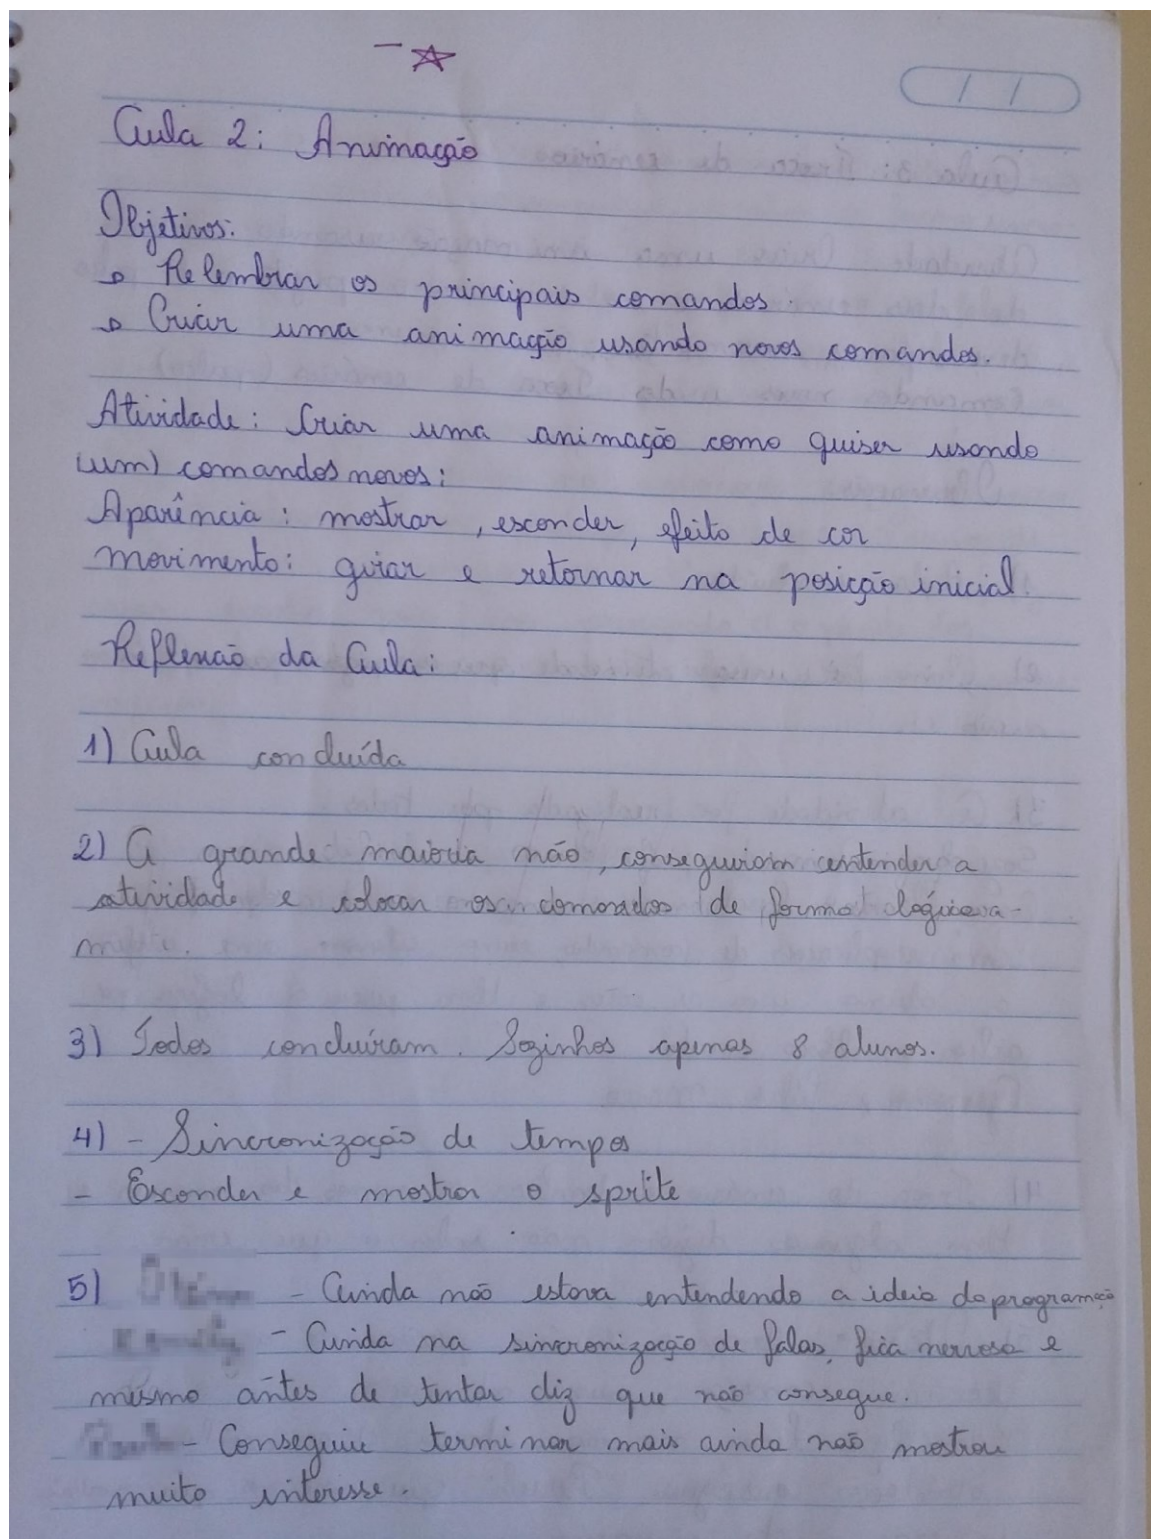 Aula 2: Animação
Objetivos:
Relembrar os principais comandos.
Criar uma animação usando novos comandos.
Atividade: Criar uma animação como quiser usando
(um) comandos novos:
Aparência: mostrar, esconder, efeito de cor
movimento: girar e retornar na posição inicial.
Reflexão da Aula:
1) Aula concluída
2) A grande maioria não, conseguiram entender a
atividade e colocar os comandos de forma lógica
3) Todos concluíram. Sozinhos apenas 8 alunos.
4) - Sincronização de tempos
- Esconder e mostrar o sprite
5) - Ainda não estava entendendo a ideia da programação
- Ainda na sincronização de falas, fica nervosa e
mesmo antes de tentar diz que não consegue.
- Conseguiu terminar mais ainda não mostrou
muito interesse.